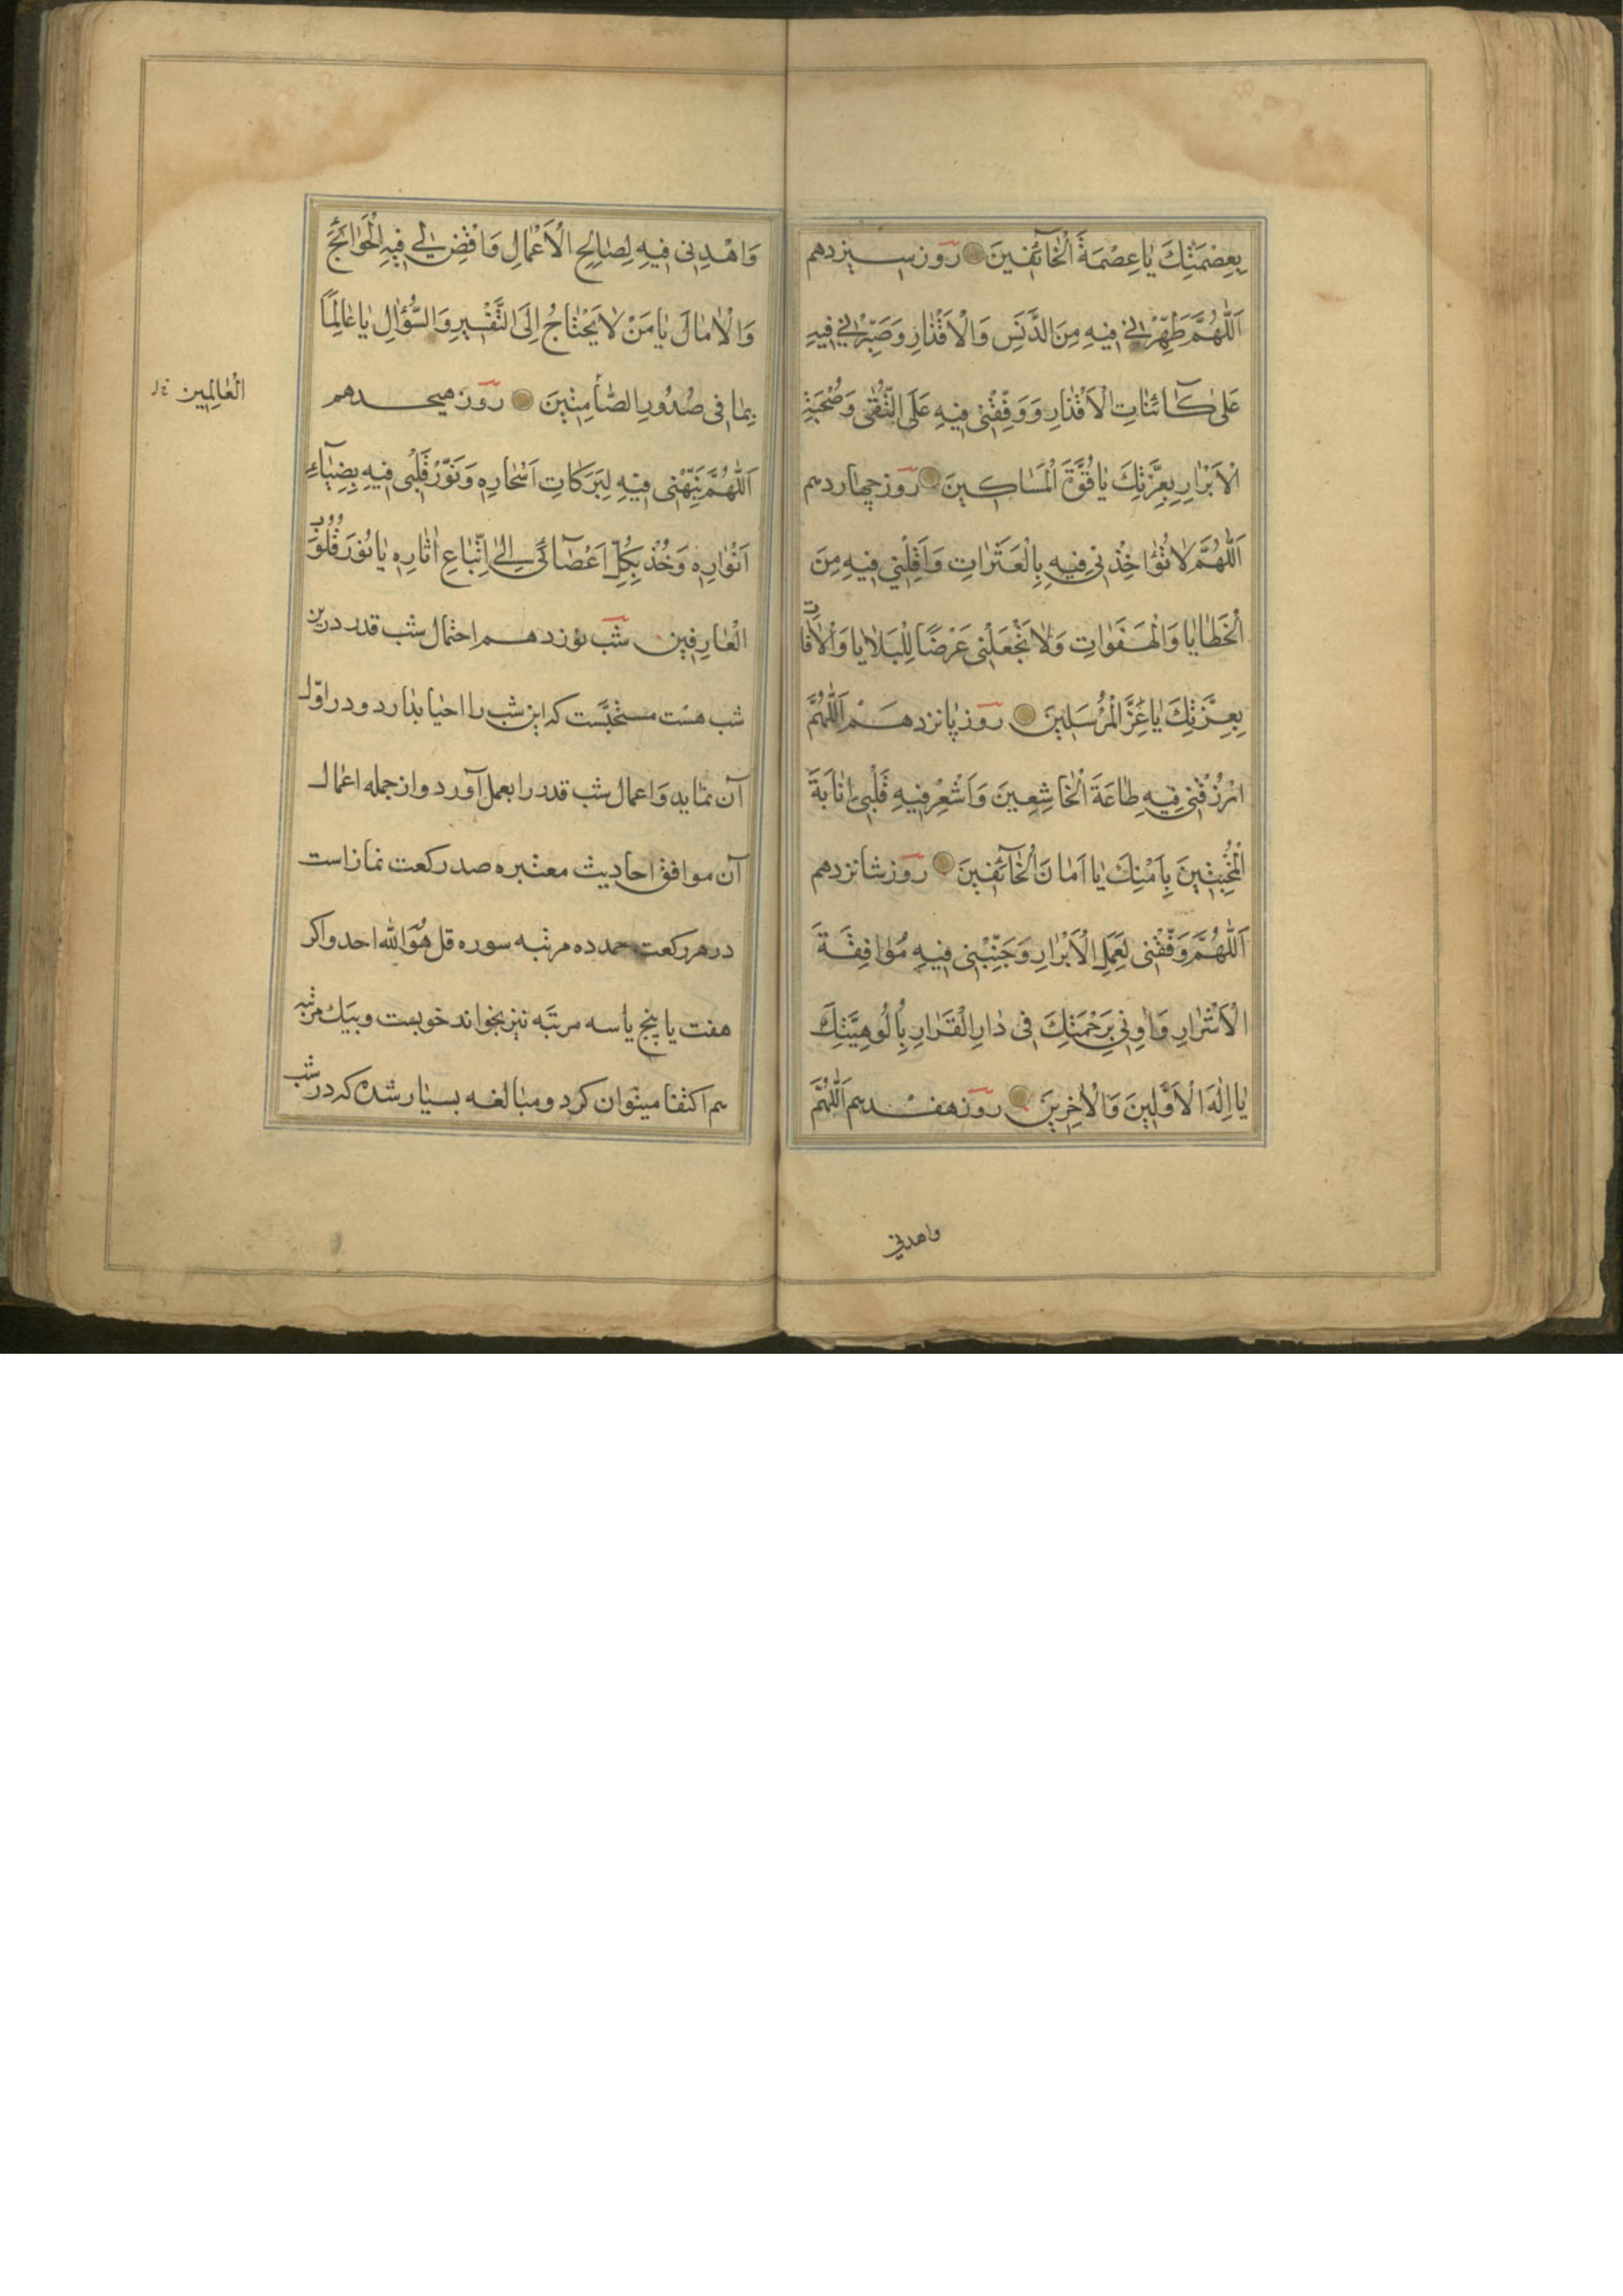 بِعِصْمَتِكَ يَا عِصْمَةَ الْخَآئِفِينَ روز سیزدهم
اَللّٰهُمَّ طَهِّرْنِي فِيهِ مِنَ الدَّنَسِ وَالْاَقْذَارِ وَصَبِّرْنِي فِيهِ
عَلىٰ كَآئِنَاتِ الْاَقْدَارِ وَوَفِّقْنِي فِيهِ عَلَى التُّقىٰ وَصُحْبَةِ
الْاَبْرَارِ بِعِزَّتِكَ يَا قُوَّةَ الْمَسَاكِينَ روز چهاردهم
اَللّٰهُمَّ لَا تُؤَاخِذْنِي فِيهِ بِالْعَثَرَاتِ وَاَقِلْنِي فِيهِ مِنَ
الْخَطَايَا وَالْهَفَوَاتِ وَلَا تَجْعَلْنِي غَرَضًا لِلْبَلَايَا وَالْاٰفَاتِ
بِعِزَّتِكَ يَا عِزَّ الْمُرْسَلِينَ روز پانزدهم اَللّٰهُمَّ
ارْزُقْنِي فِيهِ طَاعَةَ الْخَاشِعِينَ وَاَشْعِرْ فِيهِ قَلْبِي اِنَابَةَ
الْمُخْبِتِينَ بِاَمْنِكَ يَا اَمَانَ الْخَآئِفِينَ روز شانزدهم
اَللّٰهُمَّ وَفِّقْنِي لِعَمَلِ الْاَبْرَارِ وَجَنِّبْنِي فِيهِ مُوَافِقَةَ
الْاَشْرَارِ وَاٰوِنِي بِرَحْمَتِكَ فِي دَارِ الْقَرَارِ بِاُلُوهِيَّتِكَ
يَا اِلٰهَ الْاَوَّلِينَ وَالْاٰخِرِينَ روز هفدهم اَللّٰهُمَّ
واهدنی
وَاهْدِنِي فِيهِ لِصَالِحِ الْاَعْمَالِ وَاقْضِ لِي فِيهِ الْحَوَائِجَ
وَالْاٰمَالَ يَا مَنْ لَا يَحْتَاجُ اِلَى التَّفْسِيرِ وَالسُّؤَالِ يَا عَالِمًا
بِمَا فِي صُدُورِ الصَّامِتِينَ روز هیجدهم
الْعَالَمِين
اَللّٰهُمَّ نَبِّهْنِي فِيهِ لِبَرَكَاتِ اَسْحَارِهِ وَنَوِّرْ قَلْبِي فِيهِ بِضِيَآءِ
اَنْوَارِهِ وَخُذْ بِكُلِّ اَعْضَآئِي اِلىٰ اِتِّبَاعِ اٰثَارِهِ يَا نُورَ قُلُوبِ
الْعَارِفِين شب نوزدهم احتمال شب قدر درین
شب هست مستحبّست که این شب را احیا بدارد و در اوّل
آن نماید و اعمال شب قدر را بعمل آورد و از جمله اعمال
آن موافق احادیث معتبره صد رکعت نماز است
در هر رکعت حمد ده مرتبه سوره قل هُوَ الله احد و اکر
هفت یا پنج یا سه مرتبه نیز بخواند خوبست و بیك مرتبه
هم اکتفا میتوان کرد و مبالغه بسیار شده که در شب